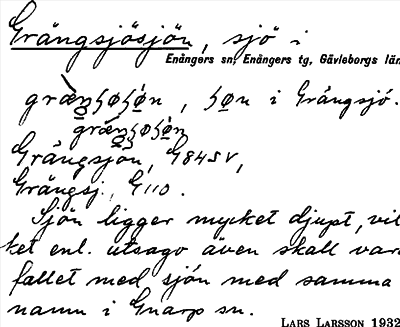 Grängsjösjön, sjö i
Enångers sn, Enångers tg, Gävleborgs län
Grängsjön, G84SV,
Grängsj. G110.
Sjön ligger mycket djupt, vil
ket enl. utsago även skall vara
fallet med sjön med samma
namn i Gnarp sn.
LARS LARSSON 1932